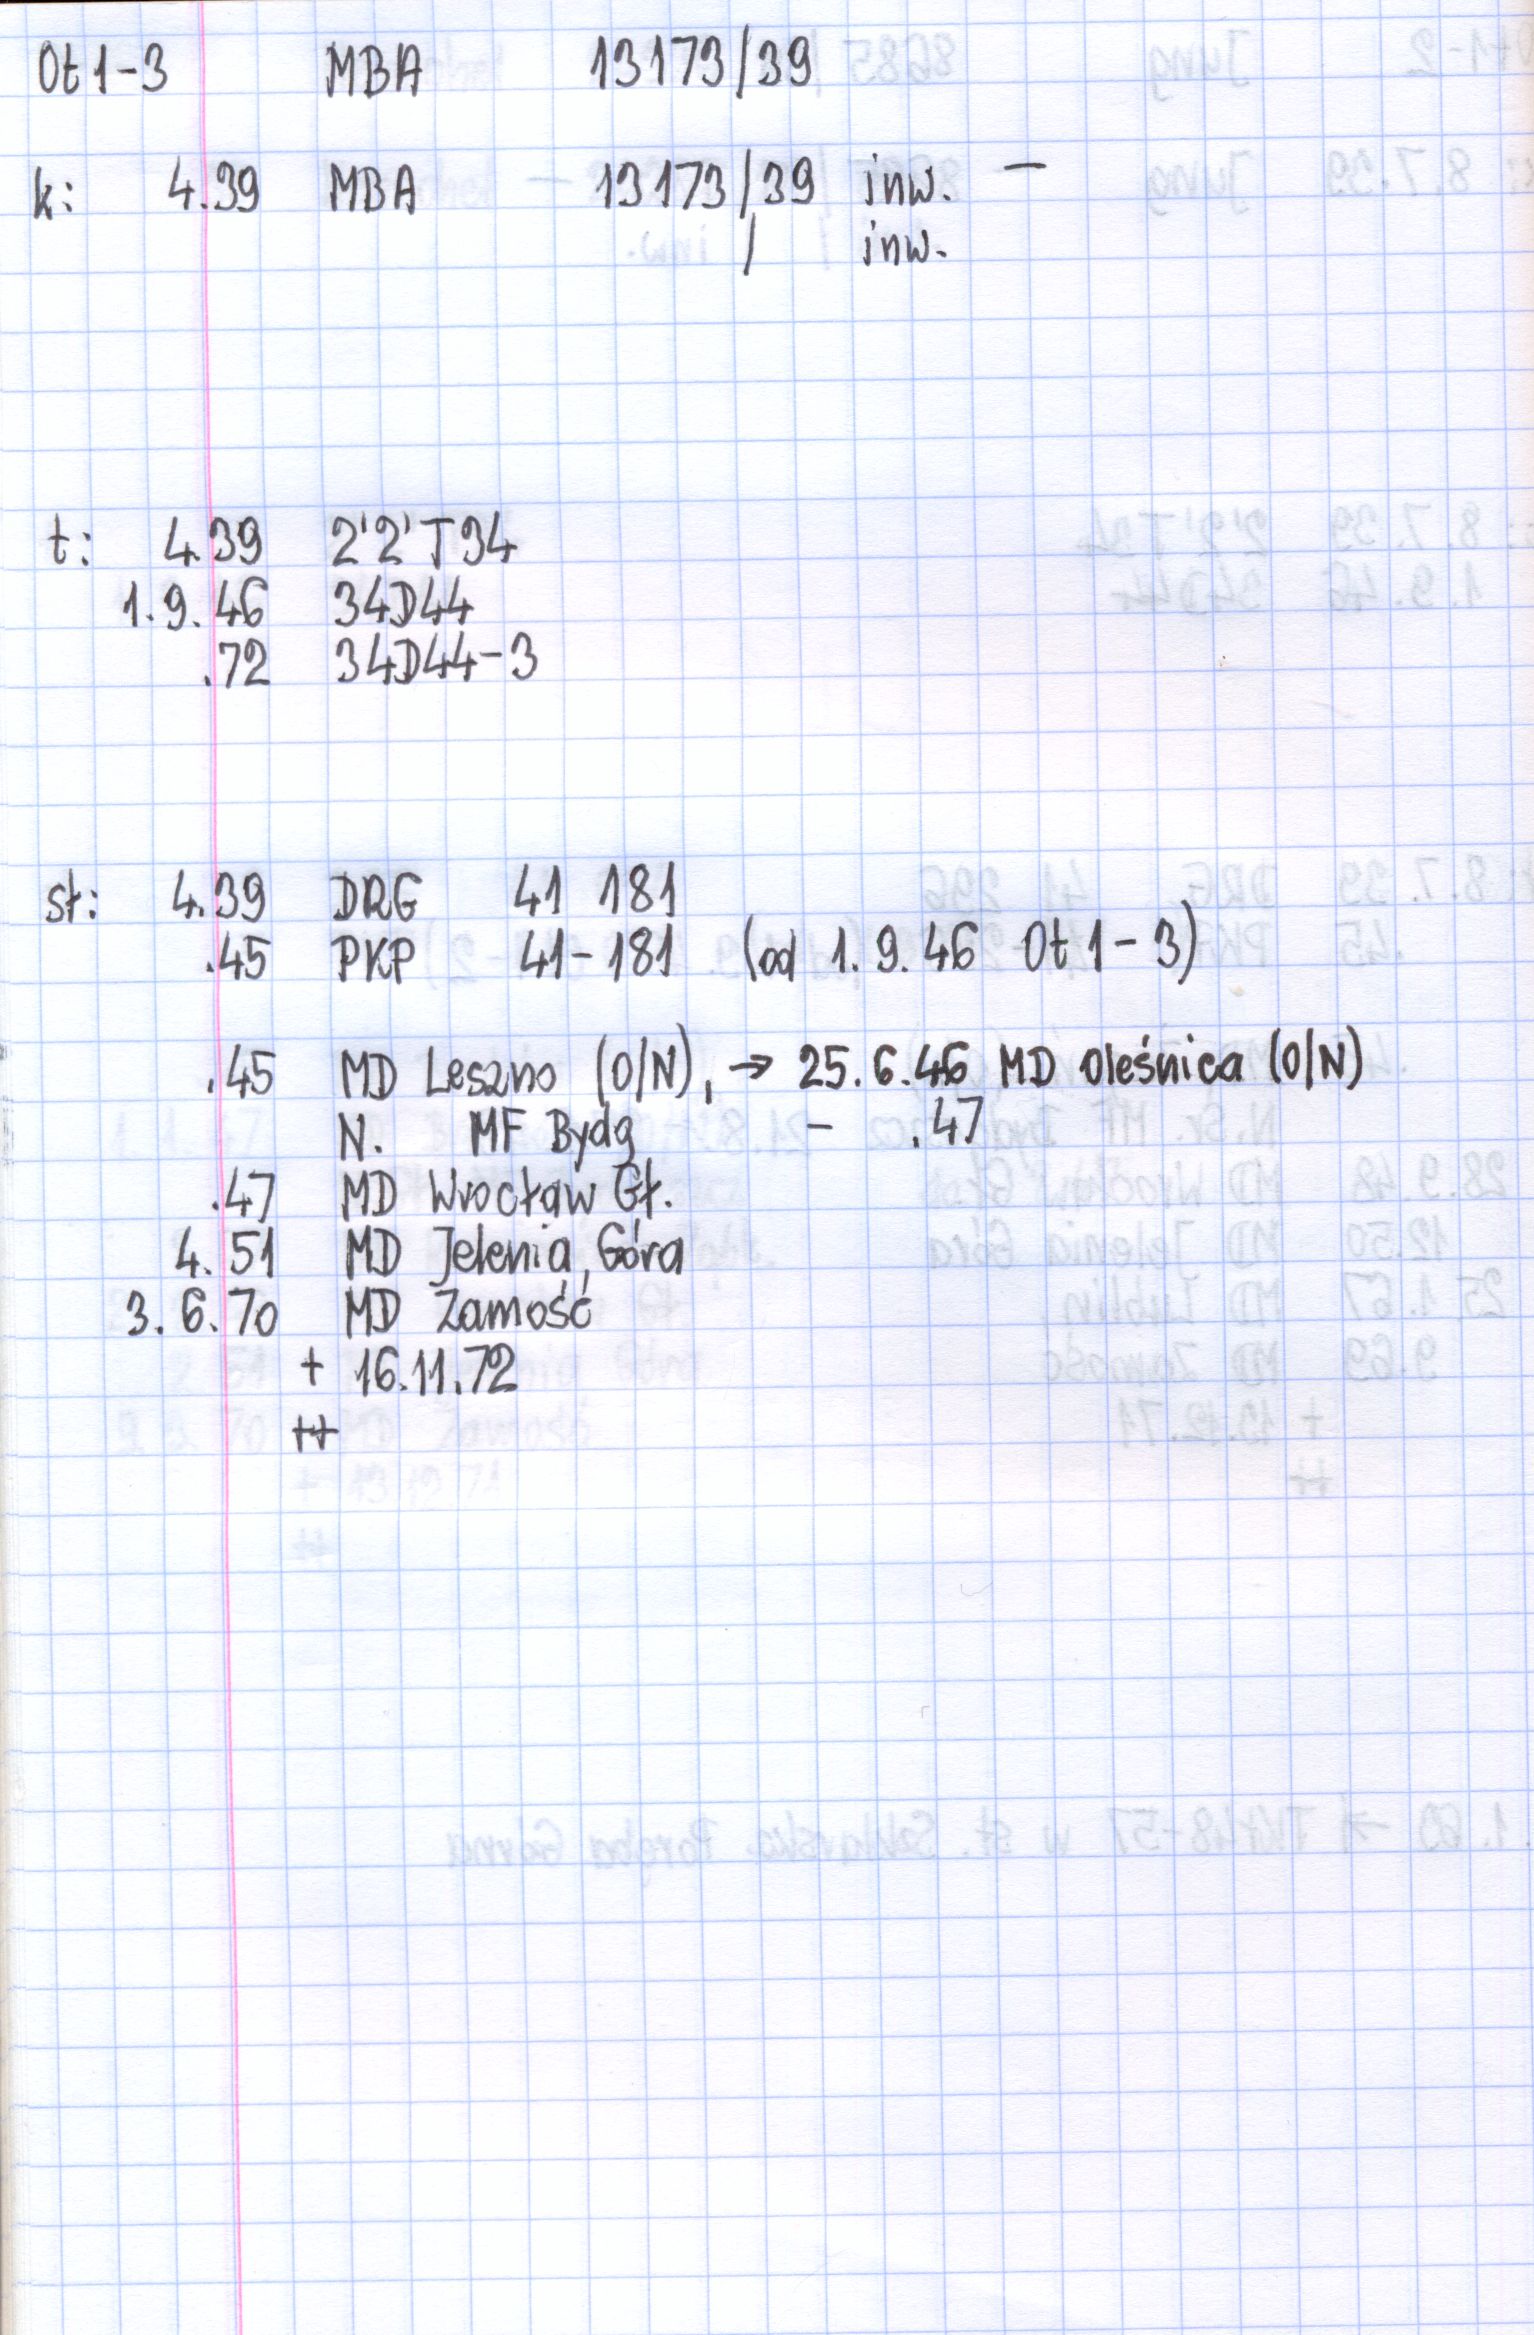 Ot1-3 MBA 13173/39
k: 4.39 MBA 13173/39 inw. —
/ inw.
t: 4.39 2'2'T34
1.9.46 34D44
.72 34D44-3
st: 4.39 DRG 41 181
.45 PKP 41-181 (od 1.9.46 Ot1-3)
.45 MD Leszno (O/N), → 25.6.46 MD Oleśnica (O/N)
N. MF Bydg - .47
.47 MD Wrocław Gł.
4.51 MD Jelenia Góra
3.6.70 MD Zamość
+ 16.11.72
++